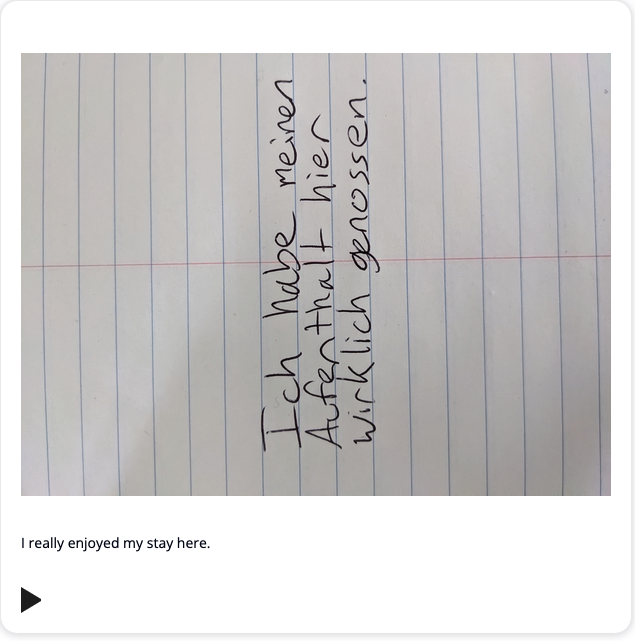 Ich habe meinen
Aufenthalt hier
wirklich genossen.
I really enjoyed my stay here.